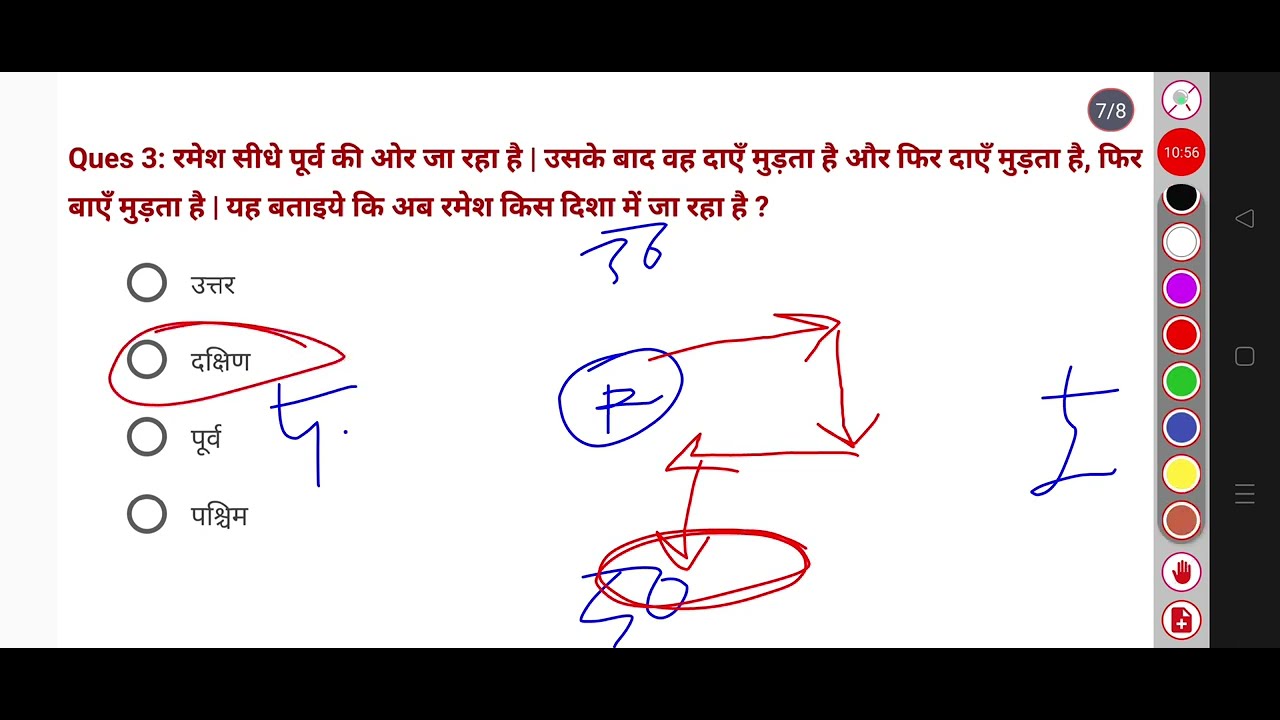 7/8
Ques 3: रमेश सीधे पूर्व की ओर जा रहा है | उसके बाद वह दाएँ मुड़ता है और फिर दाएँ मुड़ता है, फिर
बाएँ मुड़ता है | यह बताइये कि अब रमेश किस दिशा में जा रहा है ?
उत्तर
दक्षिण
पूर्व
पश्चिम
R
10:56